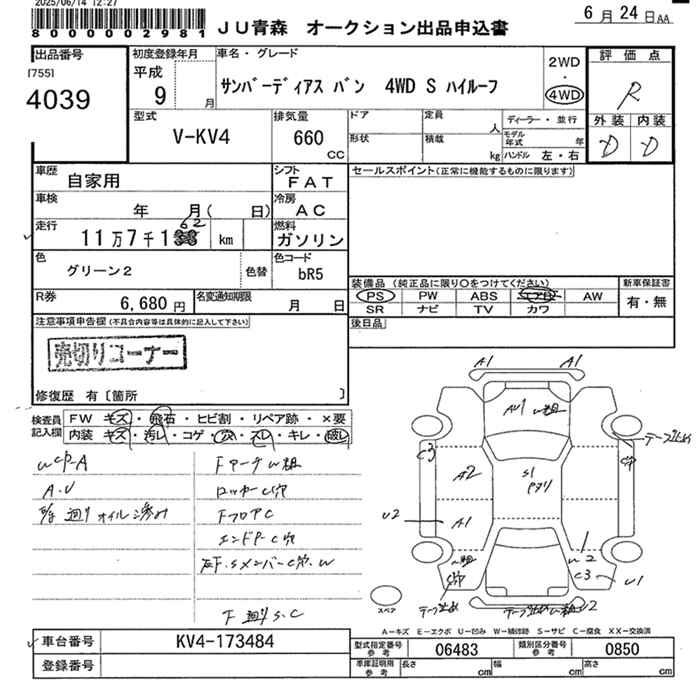 2025/06/14 12:27
80000002981
JU青森 オークション出品申込書
6月24日AA
出品番号
[755]
4039
初度登録年月
平成
9月
車名・グレード
サンバーディアス バン 4WD S ハイルーフ
2WD
・
4WD
評価点
R
外装 内装
D D
型式
V-KV4
排気量
660
CC
ドア
形状
定員
人
積載
kg
ディーラー・並行
モデル年式 年
ハンドル 左・右
車歴
自家用
シフト
FAT
セールスポイント(正常に機能するものに限ります)
車検
年 月( 日)
冷房
AC
走行
11万7千1 62 km
燃料
ガソリン
色
グリーン2
色替
色コード
bR5
装備品(純正品に限り○をつけてください)
新車保証書
PS PW ABS エアB AW
SR ナビ TV カワ
有・無
R券
6,680円
名変通知期限
月 日
後日品
注意事項申告欄(不具合内容等は具体的に記入して下さい)
売切りコーナー
修復歴 有〔箇所 〕
検査員記入欄
FW キズ・飛石・ヒビ割・リペア跡・×要
内装 キズ・汚レ・コゲ・穴・スレ・キレ・破レ
A.U
オイル滲み
ロッカーC穴
FフロアC
エンドP-C穴
F廻りS.C
A1 A1
AU1
テープ止め
C3
A2
S1
U2
A1
C3
U1
テープ止め
U2
スペア
A-キズ E-エクボ U-凹み W-補修跡 S-サビ C-腐食 XX-交換済
車台番号
KV4-173484
型式指定番号
参考
06483
類別区分番号
参考
0850
登録番号
車庫証明用
参考
長さ cm
幅 cm
高さ cm